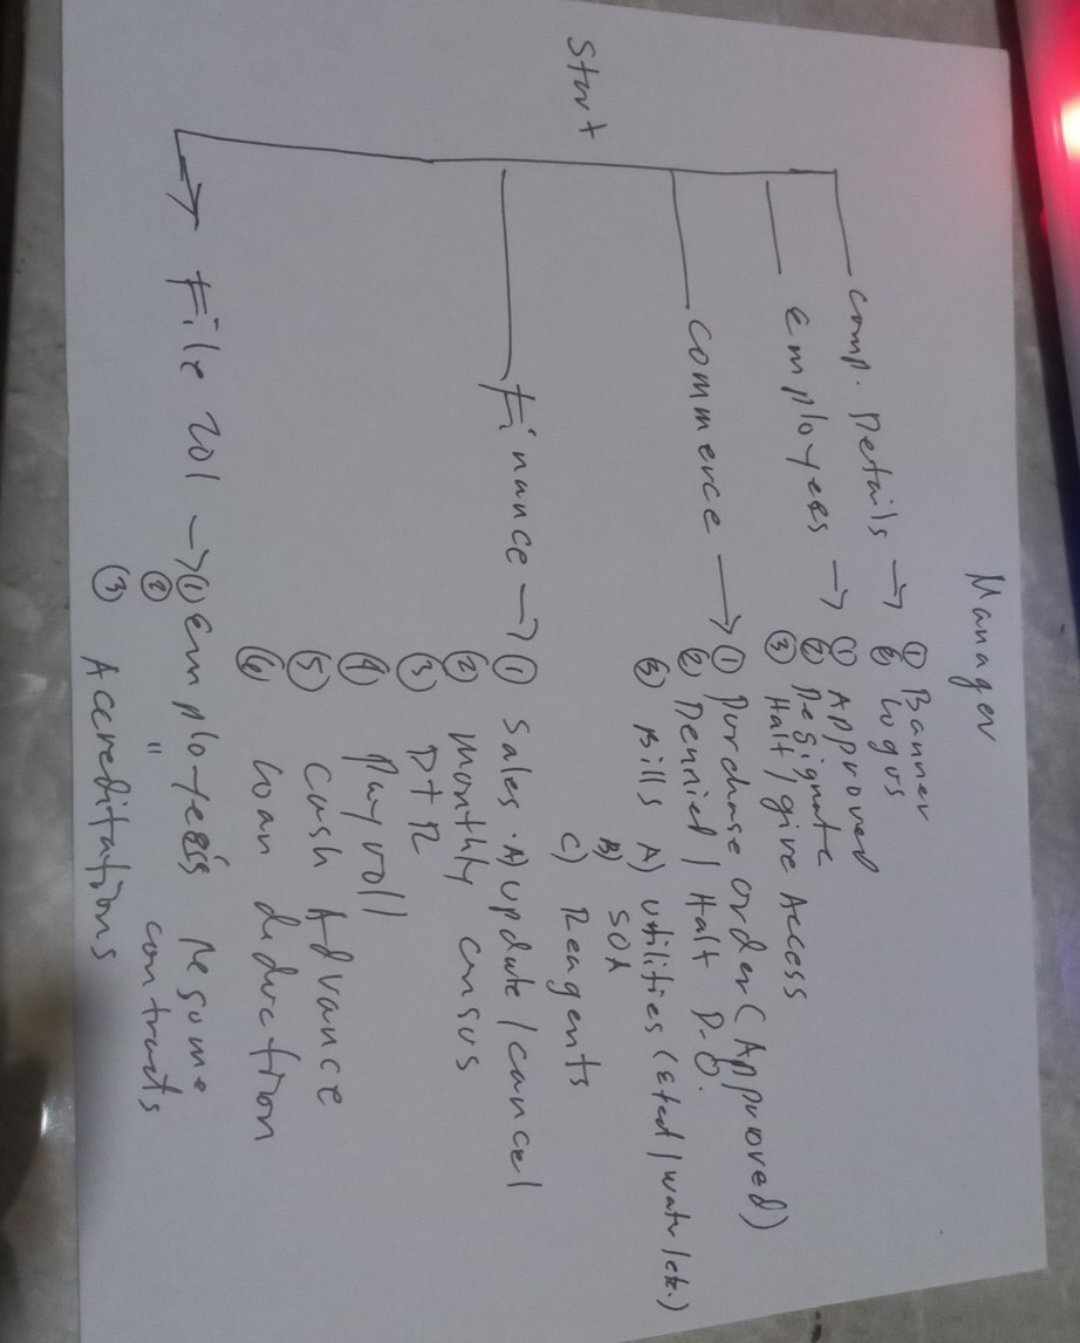 Manager
Comp. Details → ① Banner
② Logos
Employees → ① Approved
② Designate
③ Halt / give Access
Commerce → ① Purchase order (Approved)
② Dennied / Halt P.O.
③ Bills A) utilities (Elect / water / etc.)
B) SOA
C) Reagents
Start
Finance → ① Sales . A) update / cancel
② monthly census
③ DTR
④ Payroll
⑤ Cash Advance
⑥ Loan deduction
File 201 → ① Employee's Resume
② " contracts
③ Accreditations